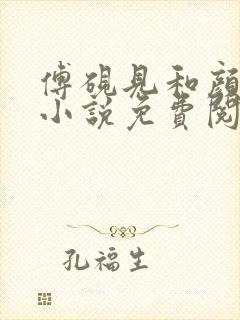 傅砚見和顔
小說免費閱
孔福生